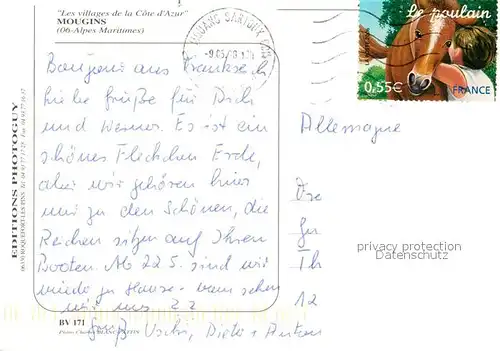 "Les villages de la Côte d'Azur"
MOUGINS
(06-Alpes Maritimes)
EDITIONS PHOTOGUY
MOUANS SARTOUX
Le poulain
0,55€
FRANCE
Bonjour aus Frankreich
liebe Grüße für Dich
und Werner. Es ist ein
schönes Fleckchen Erde,
aber wir gehören hier
nur zu den Schönen, die
Reichen sitzen auf Ihren
Booten. Ab 22.5. sind wir
wieder zu Hause - wann sehen
wir uns ??
Gruß Uschi, Dieter +
Allemagne
Th
12
privacy protection
Datenschutz
BV 171